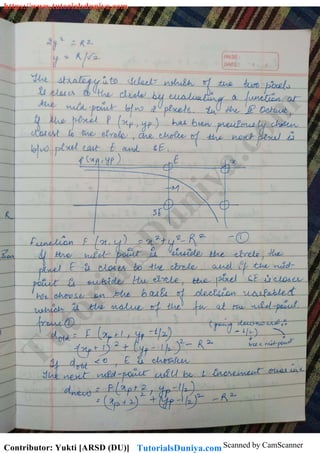 https://www.tutorialsduniya.com
2y² = R²
y = R/√2
PAGE:
DATE:
The strategy is to select which of the two pixels
is closer to the circle by evaluating a function at
the mid point b/w 2 pixels. In the II Octave
if the pixel P (xp, yp) has been previously chosen
closest to the circle, the choice of the next pixel is
b/w pixel east E and SE.
P(xp, yp)
E
M
SE
Function F(x,y) = x² + y² - R² - ①
If the mid-point is inside the circle, the
pixel E is closer to the circle and if the mid-
point is outside the circle, the pixel SE is closer
We choose on the basis of decision variable d
which is the value of the fn. at the mid-point
from ①
dold = F(xp+1, yp-1/2)
= (xp+1)² + (yp-1/2)² - R²
If dold < 0, E is chosen
The next mid-point will be 1 increment over in x
dnew = F(xp+2, yp-1/2)
= (xp+2)² + (yp-1/2)² - R²
TutorialsDuniya.com
Contributor: Yukti [ARSD (DU)] TutorialsDuniya.com Scanned by CamScanner